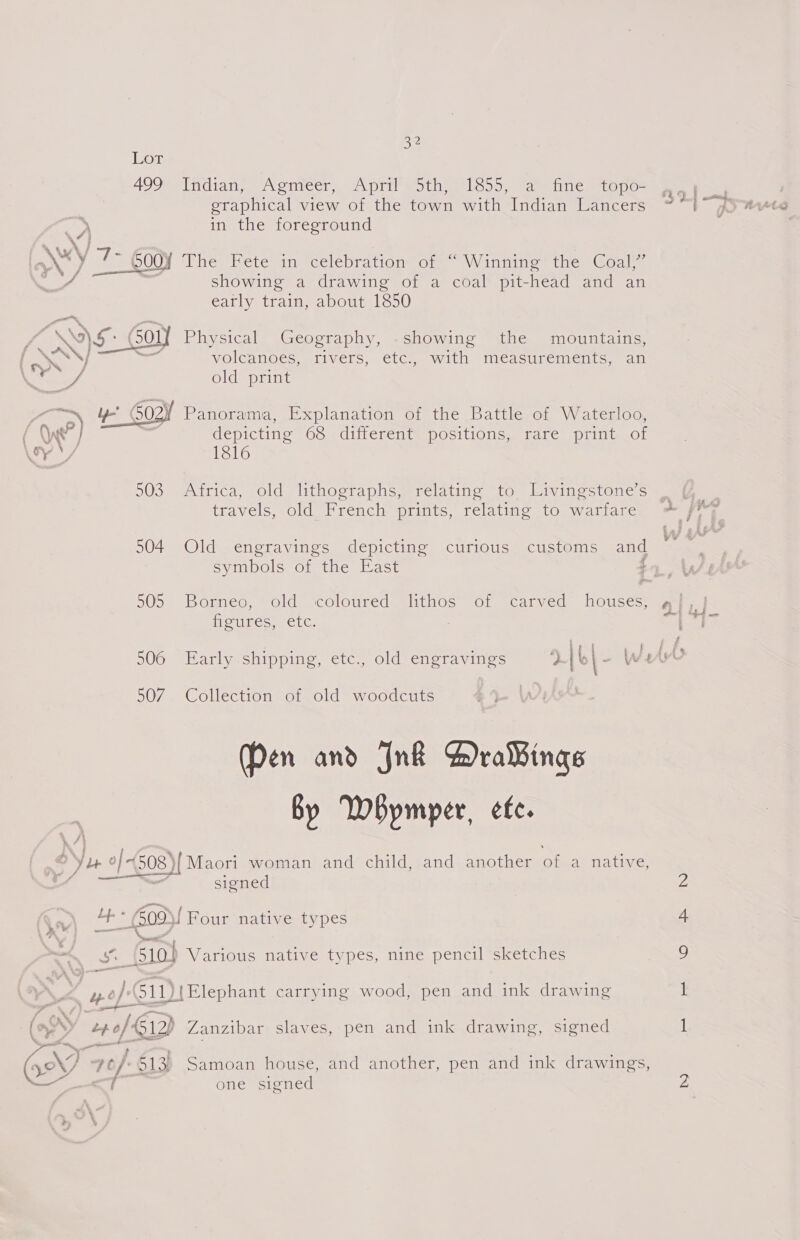 32
Lot
499 Indian, Agmeer, April 5th, 1855, a fine topo-
graphical view of the town with Indian Lancers
in the foreground
500 The Fete in celebration of “Winning the Coal,”
showing a drawing of a coal pit-head and an
early train, about 1850
501 Physical Geography, showing the mountains,
volcanoes, rivers, etc., with measurements, an
old print
502 Panorama, Explanation of the Battle of Waterloo,
depicting 68 different positions, rare print of
1816
503 Africa, old lithographs, relating to Livingstone’s
travels, old French prints, relating to warfare
504 Old engravings depicting curious customs and
symbols of the East
505 Borneo, old coloured lithos of carved houses,
figures, etc.
506 Early shipping, etc., old engravings
507 Collection of old woodcuts
Pen and Ink Drawings
By Whymper, etc.
508 Maori woman and child, and another of a native,
signed 2
509 Four native types 4
510 Various native types, nine pencil sketches 9
511 Elephant carrying wood, pen and ink drawing 1
512 Zanzibar slaves, pen and ink drawing, signed 1
513 Samoan house, and another, pen and ink drawings,
one signed 2